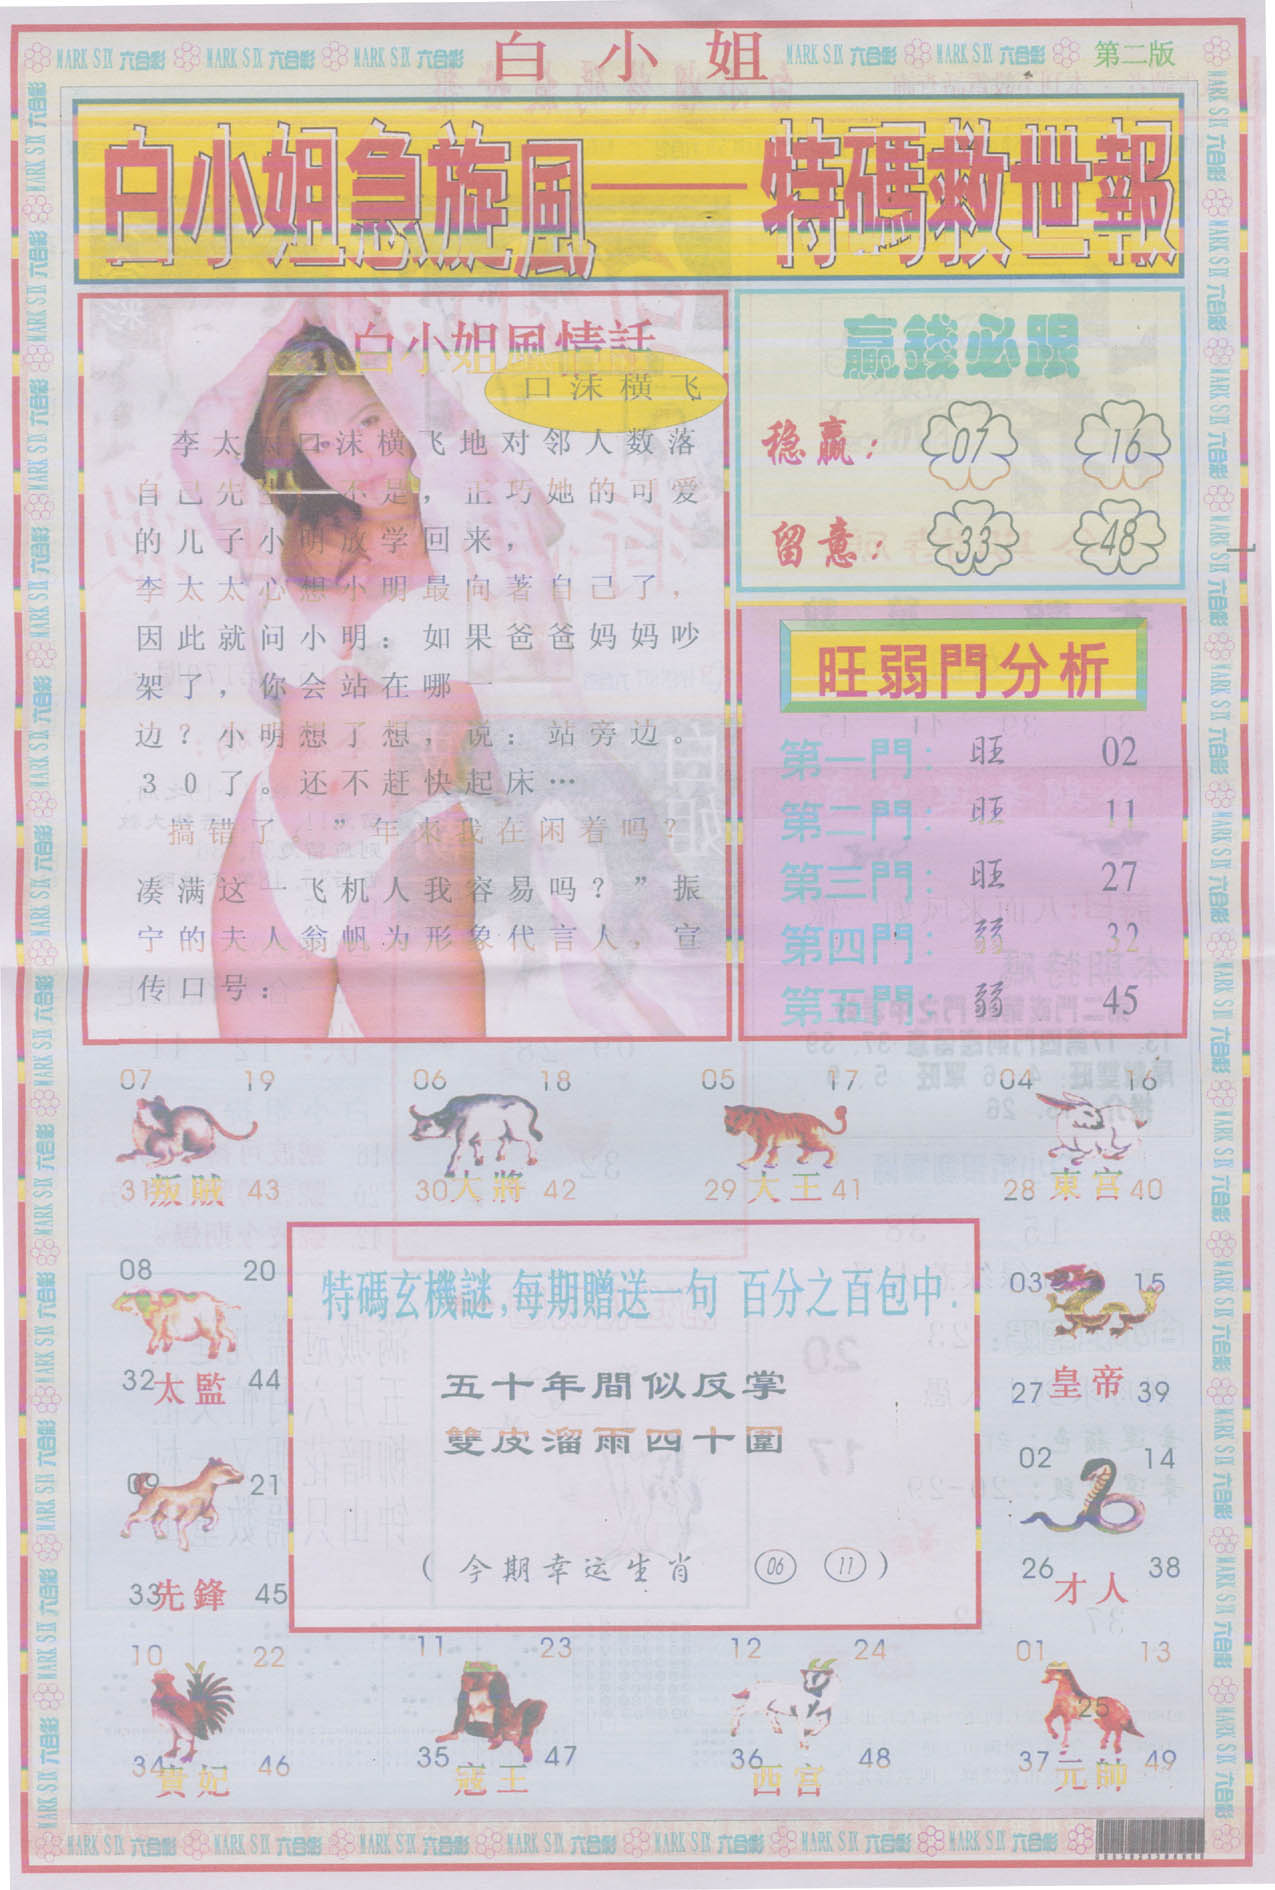 MARK SIX 六合彩 MARK SIX 六合彩 MARK SIX 六合彩 白小姐 MARK SIX 六合彩 MARK SIX 六合彩 第二版
白小姐急旋風——特碼救世報
白小姐風情話
口沫横飞
李太太口沫横飞地对邻人数落
自己先生的不是，正巧她的可爱
的儿子小明放学回来，
李太太心想小明最向著自己了，
因此就问小明：如果爸爸妈妈吵
架了，你会站在哪一
边？小明想了想，说：站旁边。
30了。还不赶快起床…
搞错了。”年来我在闲着吗？
凑满这一飞机人我容易吗？”振
宁的夫人翁帆为形象代言人，宣
传口号：
贏錢必跟
稳赢： 07 16
留意： 33 48
旺弱門分析
第一門： 旺 02
第二門： 旺 11
第三門： 旺 27
第四門： 弱 32
第五門： 弱 45
07 19
31 叛賊 43
06 18
30 大將 42
05 17
29 大王 41
04 16
28 東宮 40
08 20
32 太監 44
03 15
27 皇帝 39
09 21
33 先鋒 45
02 14
26 才人 38
特碼玄機謎,每期贈送一句 百分之百包中.
五十年間似反掌
雙皮溜雨四十圍
(今期幸运生肖 06 11)
10 22
34 貴妃 46
11 23
35 寇王 47
12 24
36 西宮 48
01 13
25
37 元帥 49
MARK SIX 六合彩 MARK SIX 六合彩 MARK SIX 六合彩 MARK SIX 六合彩 MARK SIX 六合彩 MARK SIX 六合彩 MARK SIX 六合彩